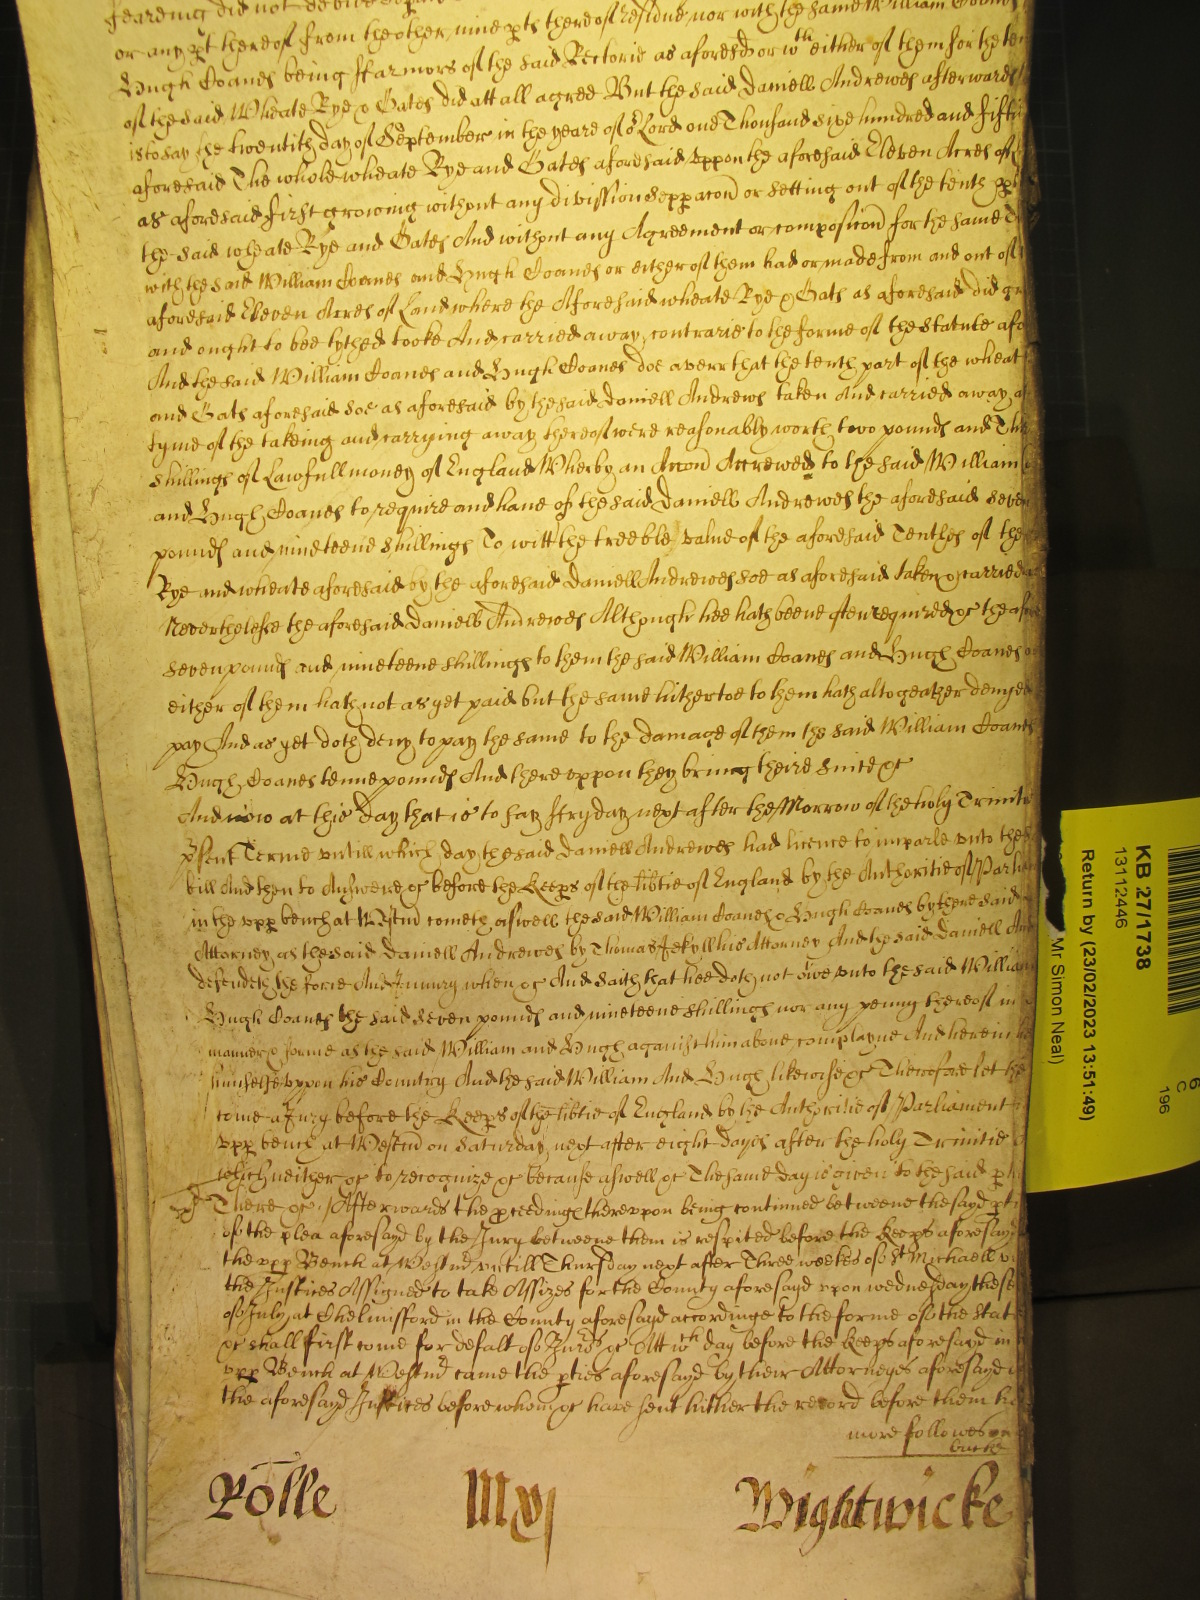 feareing did not devide
or any pt thereof from the other nine pts thereof residue, nor with the same William Coanes
Hugh Coanes being ffarmors of the said Rectorie as aforesd or wth either of them for the ten
of the said Wheate Rye & Oates did att all agree But the said Daniell Andrewes afterwards
is to say the twentith day of September in the yeare of or Lord one Thousand sixe hundred and fiftie
aforesaid The whole wheate Rye and Oates aforesaid vppon the aforesaid Eleven Acres of
as aforesaid first growing without any divission seppacon or setting out of the tenth pt
the said wheate Rye and Oates And without any Agreement or composicon for the same
with the said William Coanes and Hugh Coanes or either of them had or made from and out of
aforesaid Eleven Acres of Land where the Aforesaid wheate Rye & Oats as aforesaid did gr
and ought to bee tythed tooke And carried away contrarie to the forme of the Statute afo
And the said William Coanes and Hugh Coanes doe averr that the tenth part of the wheat
and Oats aforesaid soe as aforesaid by the said Daniell Andrews taken And carried away a
tyme of the takeing and carrying away thereof were reasonably worth two pounds and Thi
shillings of Lawfull money of England Wherby an Accon Accrewed to the said William
and Hugh Coanes to require and have of the said Daniell Andrewes the aforesaid seven
pounds and nineteene shillings To witt the treeble value of the aforesaid Tenthes of the
Rye and wheate aforesaid by the aforesaid Daniell Andrewes soe as aforesaid taken & carried
Neverthelesse the aforesaid Daniell Andrewes Although hee hath beene often required &c the afor
seven pounds and nineteene shillings to them the said William Coanes and Hugh Coanes or
either of them hath not as yet paid but the same hithertoe to them hath altogeather denyed
pay And as yet doth deny to pay the same to the damage of them the said William Coanes
Hugh Coanes tenne pounds And there vppon they bring theire suite &c
And now at this day that is to say ffryday next after the Morrow of the holy Trinitie
pˢent Terme vntill which day the said Daniell Andrewes had licence to imparle vnto the
bill And then to Answere &c before the Keeps of the libtie of England by the Authoritie of Parlia
in the vpp bench at Westm cometh aswell the said William Coanes & Hugh Coanes by there said
Attorney as the said Daniell Andrewes by Thomas Jekyll his Attorney And the said Daniell An
defendeth the force And Iniury when &c And saith that hee doth not owe vnto the said William
Hugh Coanes the said seven pounds and nineteene shillings nor any penny thereof in
manner & forme as the said William and Hugh against him above complayne And herein
himselfe vppon his Country And the said William And Hugh likewise &c Therefore let the
come a Jury before the Keeps of the libtie of England by the Authoritie of Parliament
vpp bench at Westm on Saturday next after eight dayes after the holy Trinitie
which neither &c to recognize &c because aswell &c The same day is given to the said pt
There &c Afterwards the pceedings therevpon being continued betweene the sayd pt
of the plea aforesayd by the Jury betweene them is respited before the Keeps aforesayd
the vpp Bench at Westm vntill Thursday next after Three weekes of St Michaell
the Justices Assigned to take Assizes for the County aforesayd vpon wednesday the
of July at Chelmsford in the County aforesayd accordinge to the forme of the Stat
&c shall first come for defalt of Jurs &c Att wch day before the Keeps aforesayd in
vpp Bench at Westm came the pties aforesayd by their Attorneyes aforesayd
the aforesayd Justices before whom &c have sent hither the record before them
more followes on
backe
Rolle
Wightwicke
KB 27/1738
13112446
Return by (23/02/2023 13:51:49)
Mr Simon Neal)
C
196